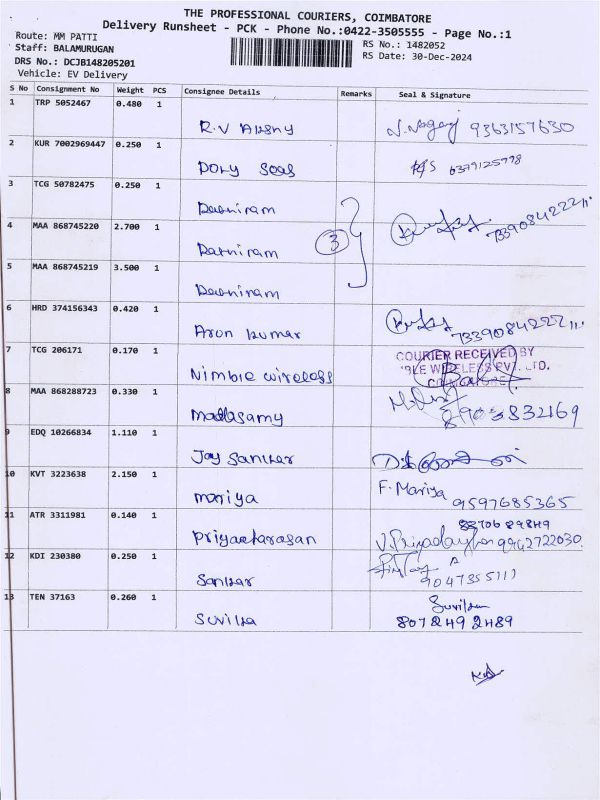 THE PROFESSIONAL COURIERS, COIMBATORE
Delivery Runsheet - PCK - Phone No.:0422-3505555 - Page No.:1
Route: MM PATTI
RS No.: 1482052
Staff: BALAMURUGAN
RS Date: 30-Dec-2024
DRS No.: DCJB148205201
Vehicle: EV Delivery
S No Consignment No Weight PCS Consignee Details Remarks Seal & Signature
1 TRP 5052467 0.480 1
R.V 9363157630
2 KUR 7002969447 0.250 1
Dory 6379125778
3 TCG 50782475 0.250 1
4 MAA 868745220 2.700 1
3 7339084222
5 MAA 868745219 3.500 1
6 HRD 374156343 0.420 1
Arun kumar 7339084222
7 TCG 206171 0.170 1
COURIER RECEIVED BY
Nimble wireless BLE WIRELESS PVT. LTD.
COIMBATORE
8 MAA 868288723 0.330 1
Madasamy
9 EDQ 10266834 1.110 1
Jay Sankar
10 KVT 3223638 2.150 1
mariya F. Mariya 9597685365
11 ATR 3311981 0.140 1
9942722030
12 KDI 230380 0.250 1
Sankar
13 TEN 37163 0.260 1
8072492489